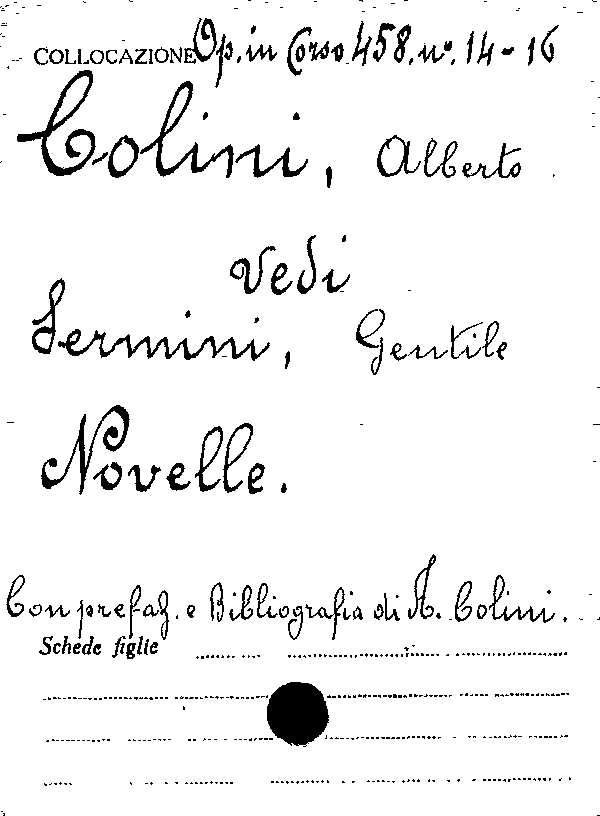 COLLOCAZIONE Op. in Corso 458. nº. 14-16
Colini, Alberto
Vedi
Sermini, Gentile
Novelle.
Con prefaz. e Bibliografia di A. Colini.
Schede figlie